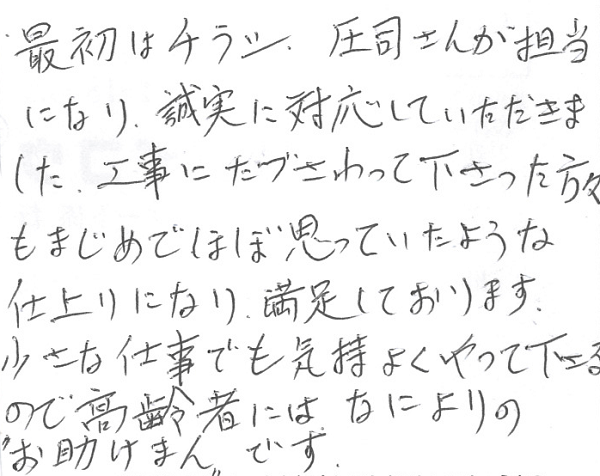 最初はチラシ、圧司さんが担当
になり、誠実に対応していただきま
した、工事にたづさわって下さった方々
もまじめでほぼ思っていたような
仕上りになり、満足しております。
小さな仕事でも気持よくやって下さる
ので高齢者には、なによりの
"お助けまん"です。